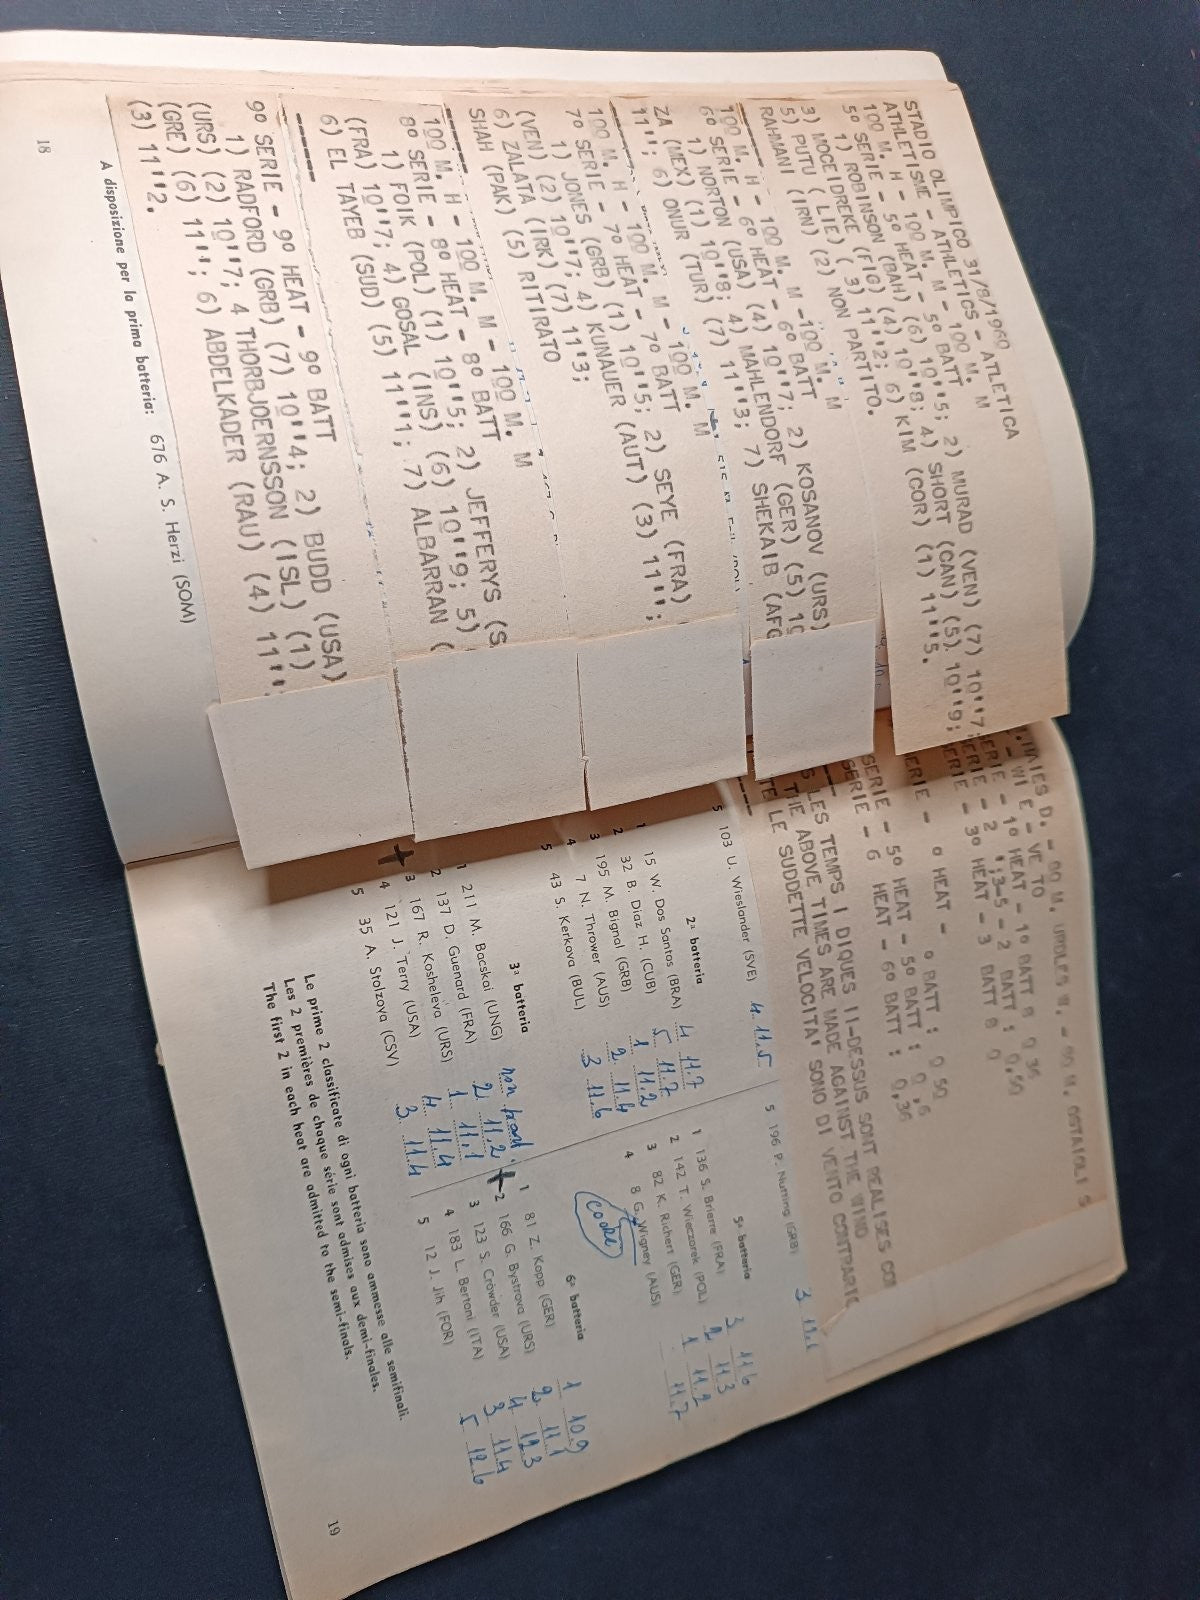 STADIO OLIMPICO 31/8/1960 - ATLETICA
ATHLETISME - ATHLETICS - 100 M. M
100 M. H - 100 M. M - 100 M. M
5º SERIE - 5º HEAT - 5º BATT
1) ROBINSON (BAH) (6) 10''5; 2) MURAD (VEN) (7) 10''7;
3) MOCEIDREKE (FIG) (4) 10''8; 4) SHORT (CAN) (5) 10''9;
5) PUTU (LIE) (3) 11''2; 6) KIM (COR) (1) 11''5.
RAHMANI (IRN) (2) NON PARTITO.
100 M. H - 100 M. M - 100 M. M
6º SERIE - 6º HEAT - 6º BATT
1) NORTON (USA) (4) 10''7; 2) KOSANOV (URS)
(1) 10''8; 4) MAHLENDORF (GER) (5) 10
ZA (MEX) 11''3; 7) SHEKAIB (AFG
11''; 6) ONUR (TUR) (7)
100 M. H - 100 M. M - 100 M. M
7º SERIE - 7º HEAT - 7º BATT
1) JONES (GRB) (1) 10''5; 2) SEYE (FRA)
(VEN) (2) 10''7; 4) KUNAUER (AUT) (3) 11'';
6) ZALATA (IRK) (7) 11''3;
SHAH (PAK) (5) RITIRATO
100 M. H - 100 M. M - 100 M. M
8º SERIE - 8º HEAT - 8º BATT
1) FOIK (POL) (1) 10''5; 2) JEFFERYS (S
(FRA) 10''7; 4) GOSAL (INS) (6) 10''9; 5)
6) EL TAYEB (SUD) (5) 11''1; 7) ALBARRAN (
9º SERIE - 9º HEAT - 9º BATT
1) RADFORD (GRB) (7) 10''4; 2) BUDD (USA)
(URS) (2) 10''7; 4 THORBJOERNSSON (ISL) (1)
(GRE) (6) 11''; 6) ABDELKADER (RAU) (4) 11''
(3) 11''2.
A disposizione per la prima batteria: 676 A. S. Herzi (SOM)
18
SERIE - 1º HEAT - 1º BATT
SERIE - 3º HEAT - 3 BATT
ERIE - º HEAT - º BATT : 0 50
SERIE - 5º HEAT - 5º BATT :
SERIE - 6 HEAT - 6º BATT : 0,36
LES TEMPS I DIQUES II-DESSUS SONT REALISES CO
THE ABOVE TIMES ARE MADE AGAINST THE WIND
TE LE SUDDETTE VELOCITA' SONO DI VENTO CONTRARIO
5 103 U. Wieslander (SVE) 4. 11.5
2ª batteria
1 15 W. Dos Santos (BRA) 4 11.7
2 32 B. Diaz H. (CUB) 5 11.7
3 195 M. Bignal (GRB) 1 11.2
4 7 N. Thrower (AUS) 2. 11.4
5 43 S. Kerkova (BUL) 3 11.6
3ª batteria
1 211 M. Bacskai (UNG) non
2 137 D. Guenard (FRA) 2. 11.2
3 167 R. Kosheleva (URS) 1 11.1
4 121 J. Terry (USA) 4. 11.4
5 35 A. Stolzova (CSV) 3. 11.4
5 196 P. Nutting (GRB) 3
5ª batteria
1 136 S. Brierre (FRA) 3 11.6
2 142 T. Wieczorek (POL) 2 11.3
3 82 K. Richert (GER) 1 11.2
4 8 G. Wigney (AUS) 11.7
cooke
6ª batteria
1 81 Z. Kopp (GER) 1 10.9
2 166 G. Bystrova (URS) 2. 11.1
3 123 S. Crowder (USA) 4 12.3
4 183 L. Bertoni (ITA) 3 11.4
5 12 J. Jih (FOR) 5 12.6
Le prime 2 classificate di ogni batteria sono ammesse alle semifinali.
Les 2 premières de chaque série sont admises aux demi-finales.
The first 2 in each heat are admitted to the semi-finals.
19